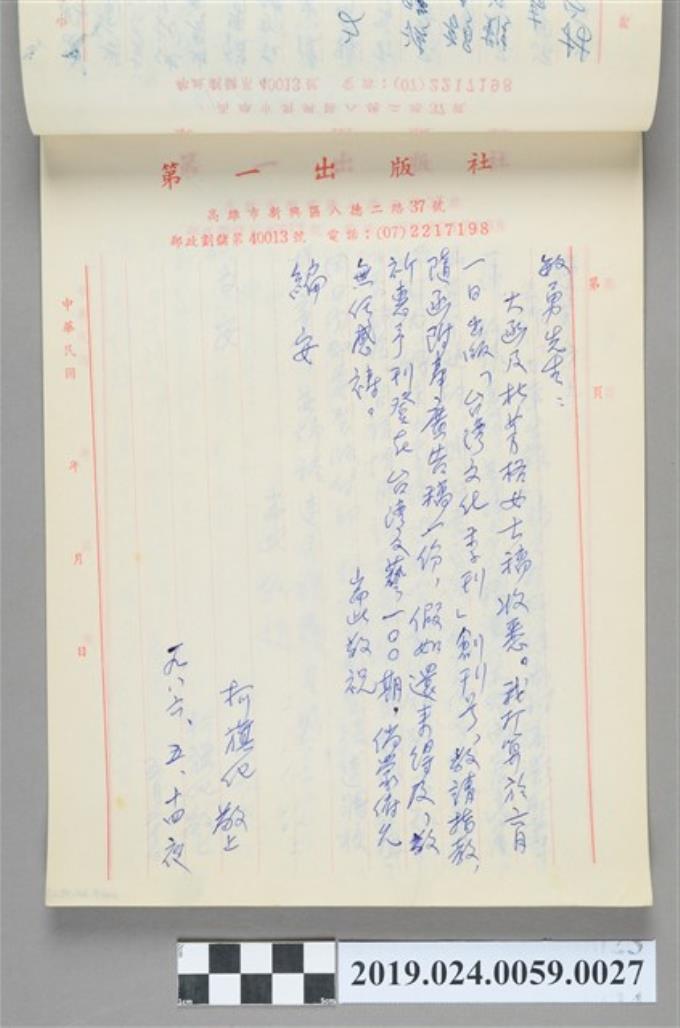 第一出版社
高雄市新興區八德二路37號
郵政劃儲第40013號 電話:(07)2217198
第 頁
敏勇先生:
大函及杜芳格女士稿收悉。我打算於六月
一日出版「台灣文化季刊」創刊号,敬請指教,
隨函附奉廣告稿一份,假如還来得及,敬
祈惠予刊登在台灣文藝一〇〇期,倘蒙俯允
無任感禱。 耑此敬祝
編安
柯旗化 敬上
一九八六、五、十四夜
中華民國 年 月 日
2019.024.0059.0027